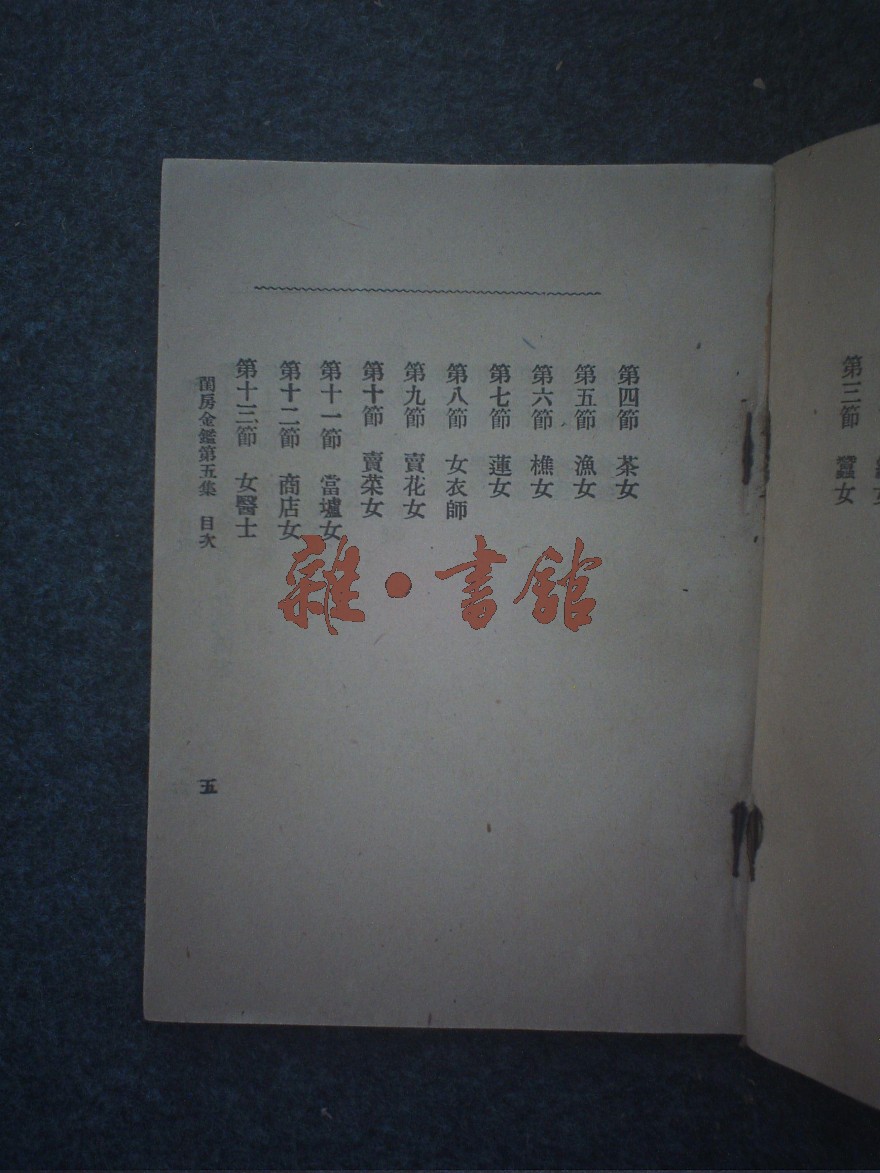 第三節　蠶女
第四節　茶女
第五節　漁女
第六節　樵女
第七節　蓮女
第八節　女衣師
第九節　賣花女
第十節　賣菜女
第十一節　當壚女
第十二節　商店女
第十三節　女醫士
閨房金鑑第五集　目次
五
雜・書館